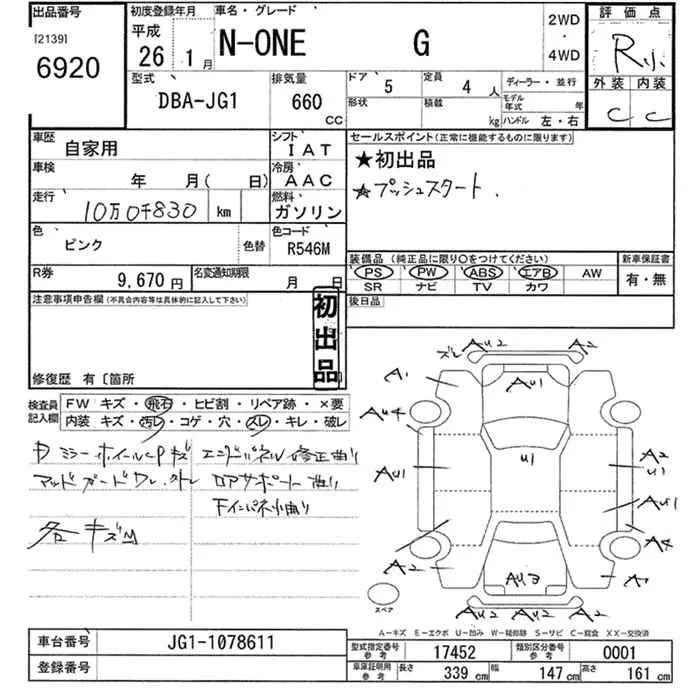 出品番号 初度登録年月 車名・グレード 2WD・4WD 評価点
[2139] 平成
6920 26 1月 N-ONE G R小
型式 排気量 ドア 5 定員 4人 ディーラー・並行 外装 内装
DBA-JG1 660cc 形状 積載 kg モデル年式 年 C C
ハンドル 左・右
車歴 自家用 シフト IAT セールスポイント(正常に機能するものに限ります)
車検 年 月( 日) 冷房 AAC ★初出品
走行 10万0千830 km 燃料 ガソリン ★プッシュスタート.
色 ピンク 色替 色コード R546M
装備品(純正品に限り○をつけてください) 新車保証書
R券 9,670円 名変通知期限 月 日 PS PW ABS エアB AW 有・無
SR ナビ TV カワ
注意事項申告欄(不具合内容等は具体的に記入して下さい) 後日品
初出品
修復歴 有〔箇所
検査員記入欄 FW キズ・飛石・ヒビ割・リペア跡・×要
内装 キズ・汚レ・コゲ・穴・スレ・キレ・破レ
ミラー ホイールCPキズ エンドパネル修正曲り
マッドガードワレ.外レ ロアサポート曲り
下インパネ小曲り
各キズ
ズレ AU2 A2
A1 AU1
AU4
AU1 U1 A2
U1
AU1
A2 A4
AU3 A
AU2 AU2 A2
スペア
A−キズ E−エクボ U−凹み W−補修跡 S−サビ C−腐食 XX−交換済
車台番号 JG1-1078611 型式指定番号 参考 17452 類別区分番号 参考 0001
登録番号 車庫証明用 参考 長さ 339cm 幅 147cm 高さ 161cm